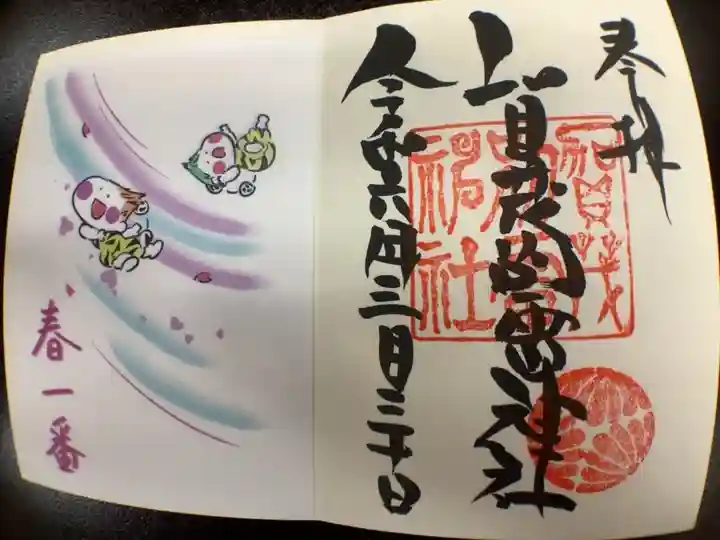 奉拝
賀茂別雷神社
令和六年三月二十日
賀茂
別雷
神社
春一番